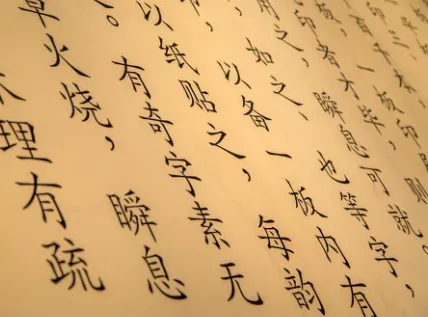 一板印刷
印者才毕，则
之，瞬息可就。
如之、也等字，
以备一板内有
以纸贴之，每韵
有奇字素无
草火烧，瞬息
木理有疏